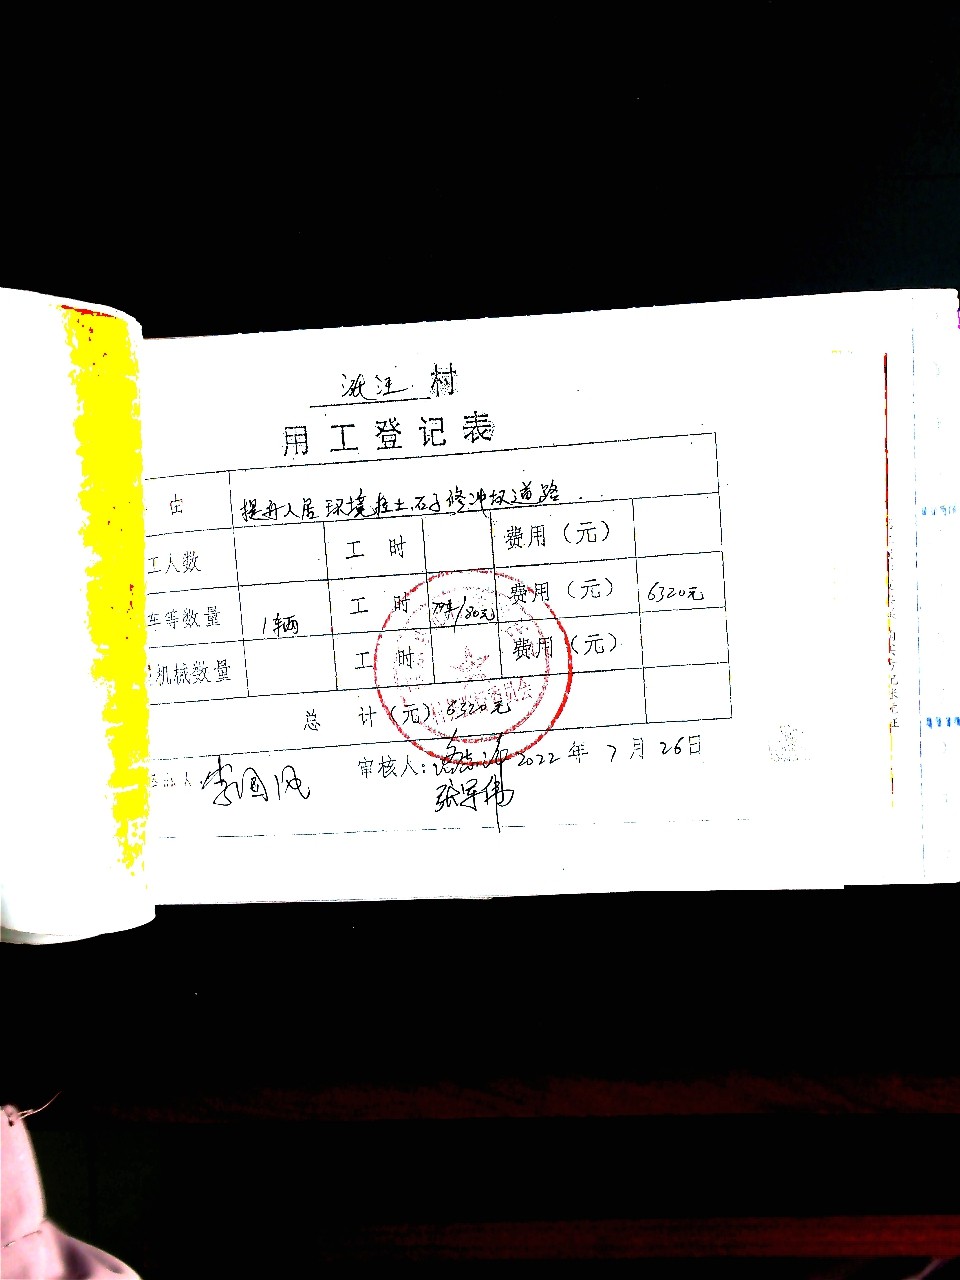 汪 村
用工登记表
由 提升人居环境拉土.石子修冲坟道路.
工人数 工 时 费用(元)
车等数量 1辆 工 时 /80元 费用(元) 6320元
机械数量 工 时 费用(元)
总 计(元) 6320元
人: 李国风 审核人: 2022年7月26日
张军伟